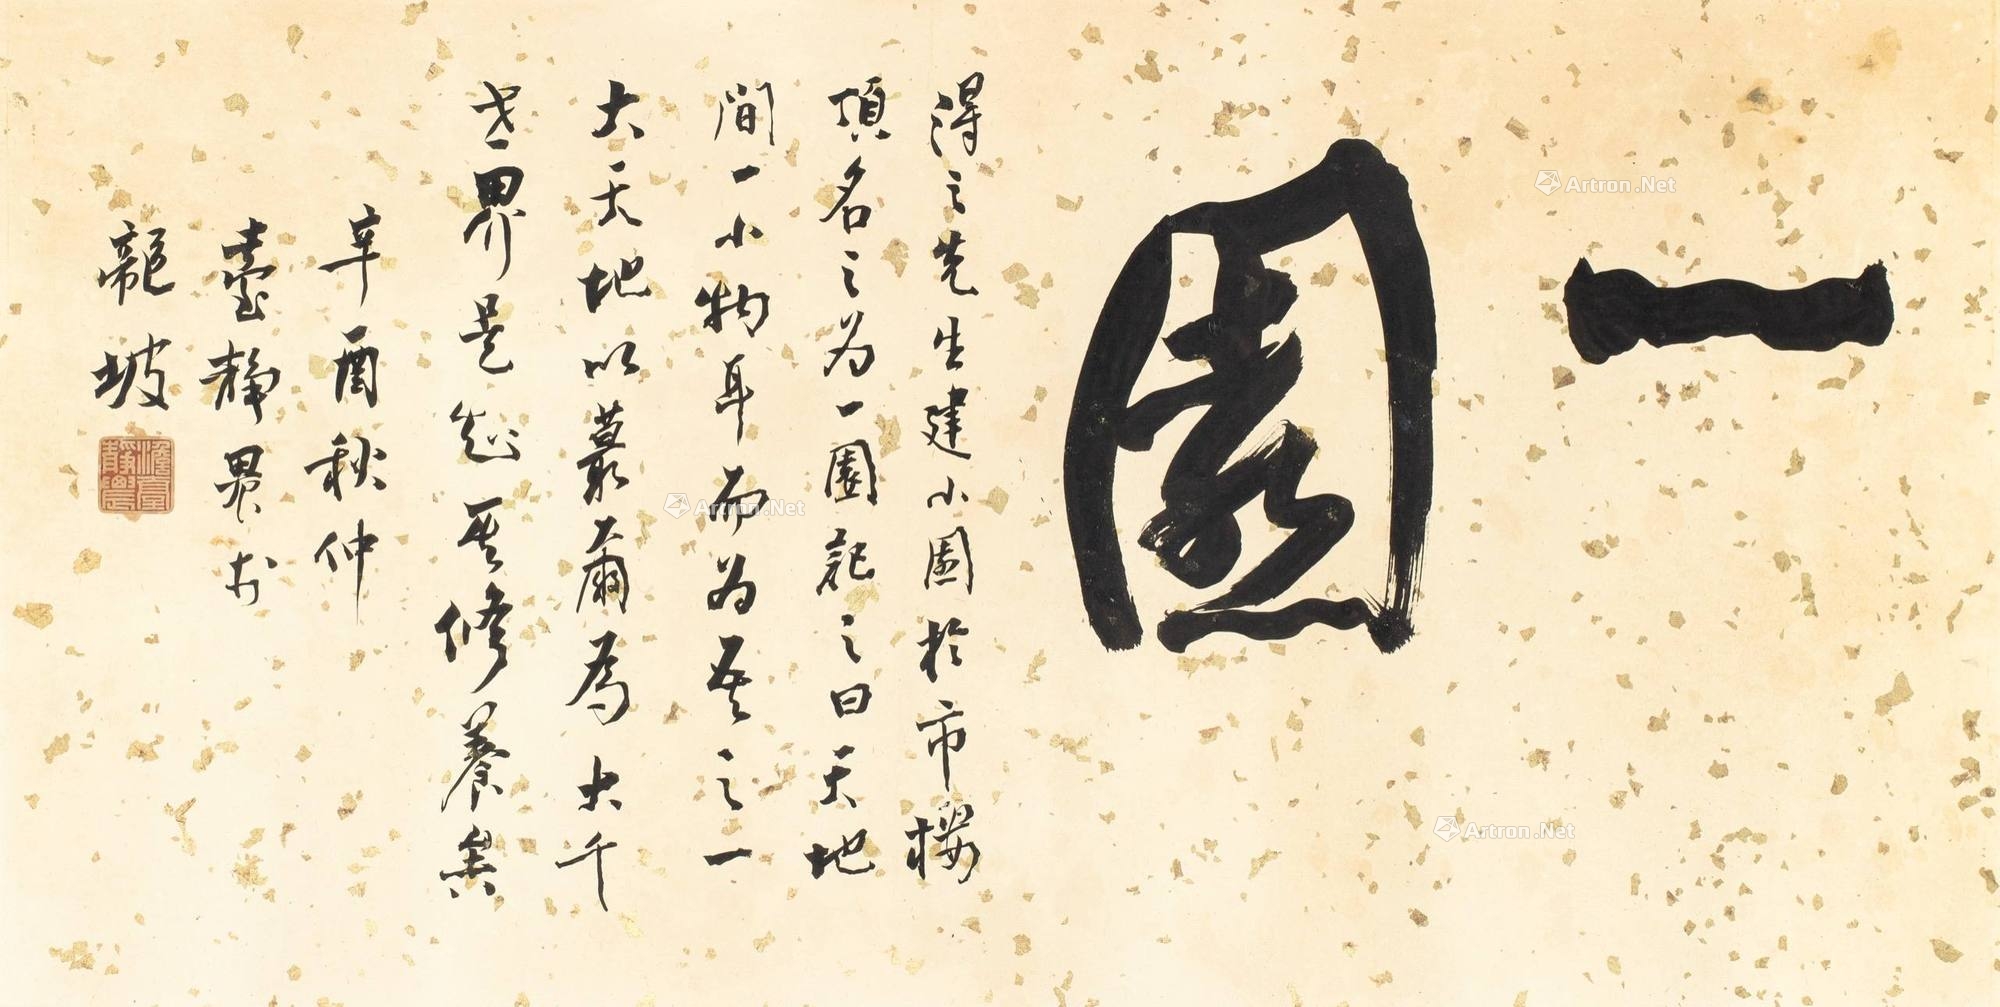 一園
得之先生建小園於市樓
頂名之為一園記之曰天地
間一小物耳而為吾之一
大天地以蕞爾為大千
世界是知其修養矣
辛酉秋仲
臺靜農於
龍坡
澹臺靜農
Artron.Net
Artron.Net
Artron.Net